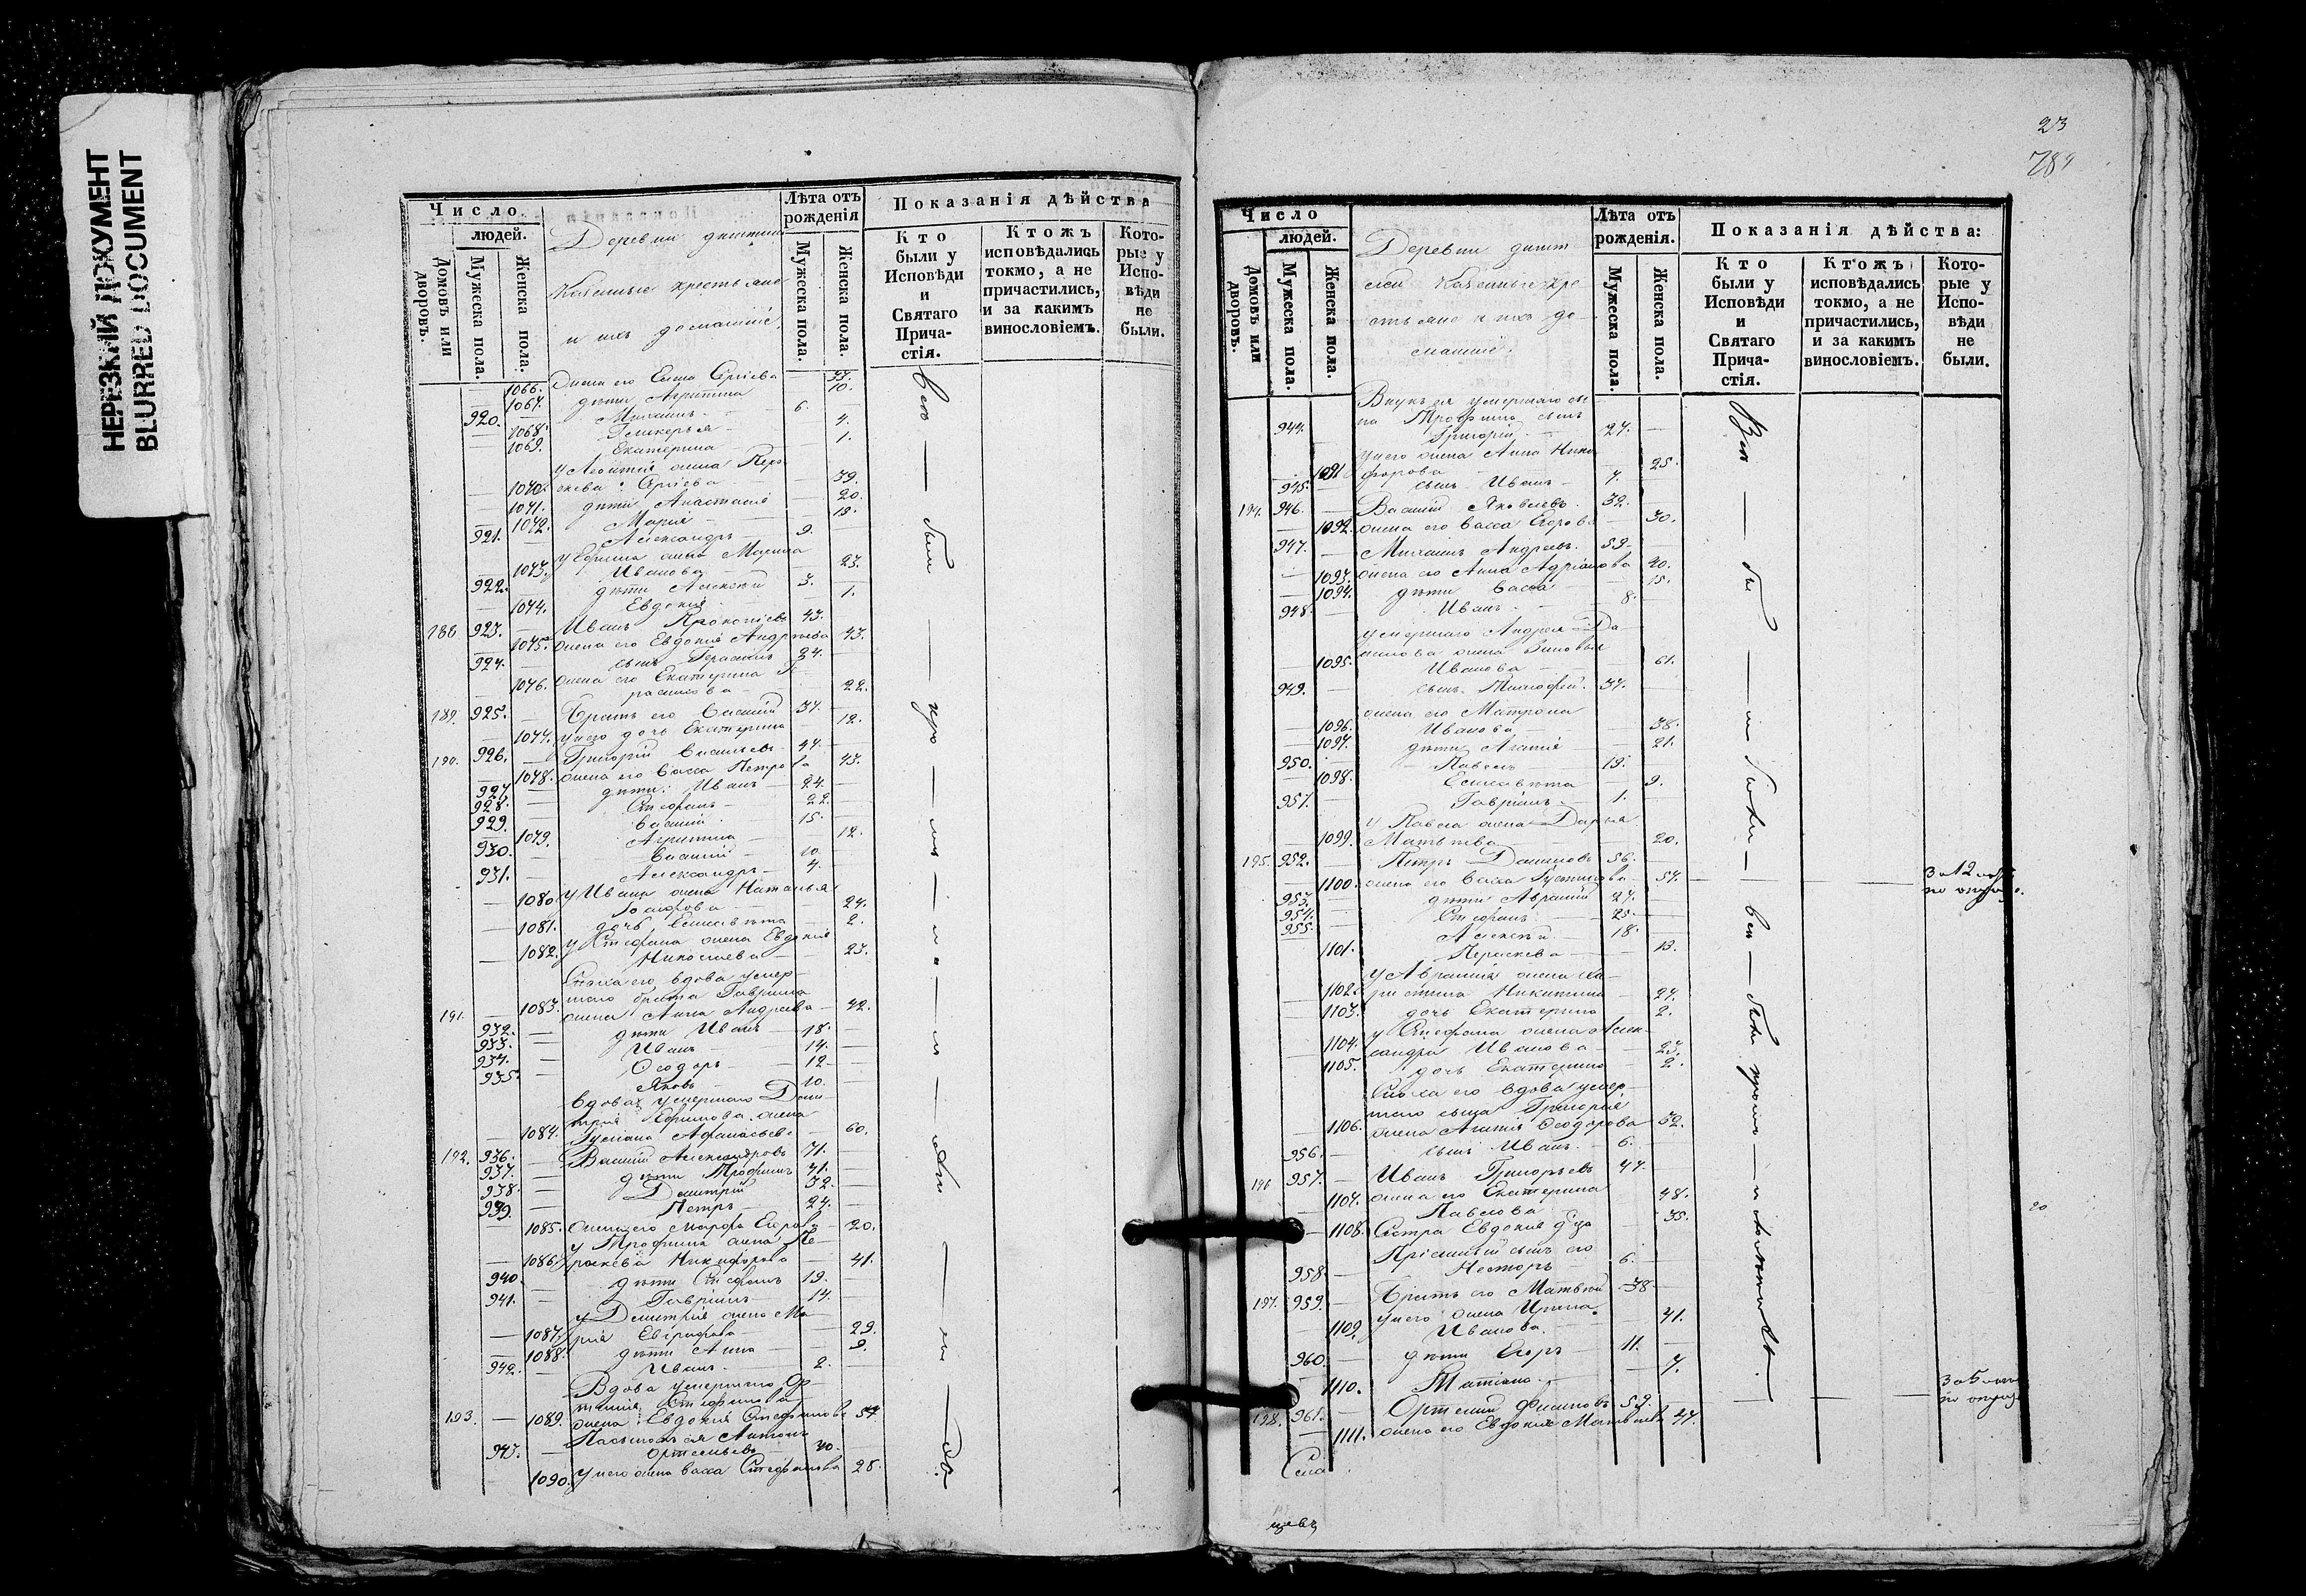 НЕРЕЗКИЙ ДОКУМЕНТ
BLURRED DOCUMENT
Число
людей.
Домовъ или дворовъ.
Мужеска пола.
Женска пола.
Деревни
Казенные крестьяне
и ихъ домашніе,
Лѣта отъ рожденія
Мужеска пола.
Женска пола.
Показанія дѣйства
Кто были у Исповѣди и Святаго Причастія.
Ктожъ исповѣдались токмо, а не причастились, и за какимъ винословіемъ.
Которые у Исповѣди не были.
1066. жена его Елена Сергіева 33.
1067. дѣти Агрипина 10.
920. Михаилъ 6.
1068. Гликерья 4.
1069. Екатерина 1.
у жена Пара
1070. скева Сергіева 39.
1071. дѣти Анастасія 20.
1072. Марія 12.
921. Александръ 9.
у Ефима жена Марина
1073. Иванова 23.
922. дѣти Алексѣй 3.
1074. Евдокія 1.
188 923. Иванъ Прокопіевъ 43.
1075. жена его Евдокія Андреева 43.
924. сынъ Герасимъ 24.
1076. жена его Екатерина Ге
расимова 22.
189. 925. Братъ его Василій 37.
1077. у него дочь Екатерина 12.
190. 926. Григорій Васильевъ 44.
1078. жена его Васса Петрова 43.
927. дѣти: Иванъ 24.
928. Стефанъ 22.
929. Василій 15.
1079. Агрипина 12.
930. Василій 10.
931. Александръ 4.
1080. у Ивана жена Наталья
24.
1081. дочь Елисавета 2.
у Стефана жена Евдокія
1082. Николаева 23.
вдова умер
шаго брата Гавріила
191. 1083. жена Анна Андреева 42.
932. дѣти Иванъ 18.
933. Иванъ 14.
934. Ѳеодоръ 12.
935. Яковъ 10.
вдова умершаго Дми
трія Ефимова жена
1084. Афанасьева 60.
192. 936. Василій Александровъ 71.
937. дѣти Трофимъ 41.
938. Димитрій 32.
939. Петръ 24.
1085. жена его Марфа Егорова 20.
у Трофима жена Па
1086. раскева Никифорова 41.
940. дѣти Стефанъ 19.
941. Гавріилъ 14.
у Димитрія жена Ма
1087. рія Евграфова 29.
1088. дѣти Анна 9.
942. Иванъ 2.
Вдова умершаго
Стефанова
193. 1089. жена Евдокія Стефанова 57.
Антонъ
943. Ортемьевъ 30.
1090. у него жена Васса Стефанова 28.
23
789
Число
людей.
Домовъ или дворовъ.
Мужеска пола.
Женска пола.
Деревни
Казенные кре
стьяне и ихъ до
машніе.
Лѣта отъ рожденія.
Мужеска пола.
Женска пола.
Показанія дѣйства:
Кто были у Исповѣди и Святаго Причастія.
Ктожъ исповѣдались токмо, а не причастились, и за какимъ винословіемъ.
Которые у Исповѣди не были.
Внукъ ея умершаго сы
на Трофима сынъ
944. Григорій 27.
у него жена Анна Ники
1091 форова 25.
945. сынъ Иванъ 4.
194. 946. Василій Яковлевъ 32.
1092. жена его Васса Егорова 30.
947. Михаилъ Андреевъ. 59.
1093. жена его Анна Адріанова 20.
1094. дѣти Васса 15.
948. Иванъ 8.
умершаго Андрея Да
нилова жена Зиновья
1095. Иванова 61.
949. сынъ Тимофей. 37.
жена его Матрона
1096. Иванова 38.
1097. дѣти Агапія 21.
950. Павелъ 19.
1098. Елисавета 9.
951. Гавріилъ 1.
у Павла жена Дарья
1099. Матвѣева 20.
195. 952. Петръ Даниловъ 56.
1100. жена его Васса 57.
953. дѣти Аврамій 27.
954. Стефанъ 25.
955. Алексѣй 18.
1101. Параскева 13.
у Аврамія жена Ка
1102. Никитина 27.
1103. дочь Екатерина 2.
у Стефана жена Алек
1104. сандра Иванова 23.
1105. дочь Екатерина 2.
Сноха его вдова умер
шаго сына Григорія
1106. жена Агапія Ѳеодорова 32.
956. сынъ Иванъ 6.
196 957. Иванъ Григорьевъ 47.
жена его Екатерина
1107. Павлова 48.
1108. Сестра Евдокія 35.
Пріемный сынъ его
958. Несторъ 6.
197. 959. Братъ его Матвей 38.
у него жена Ирина
1109. Иванова. 41.
960. дѣти Егоръ 11.
1110. Татіана 7.
198. 961. Ортемій Филиповъ 59.
1111. жена его Евдокія Матвѣева 47.
20